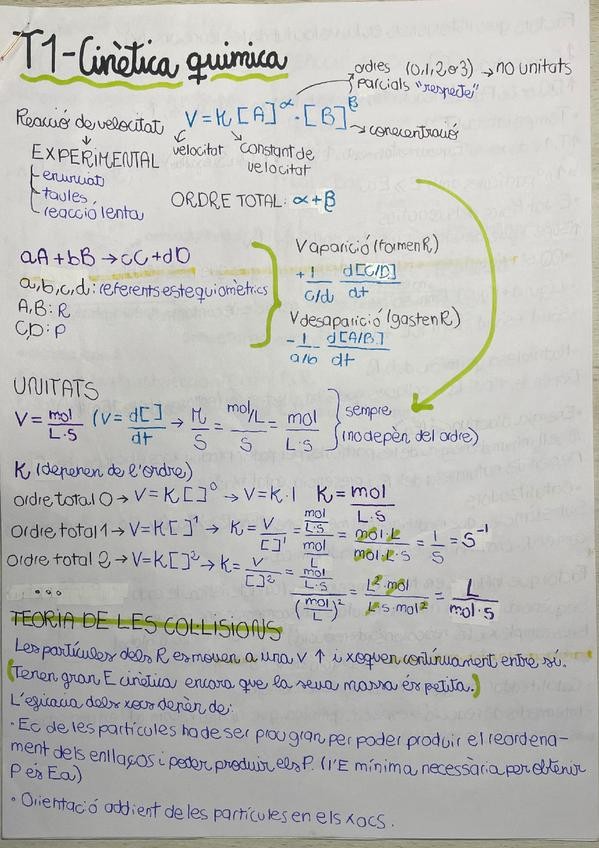 T1-Cinètica química
ordres (0,1,2 o 3) → no unitats
parcials "respecte"
Reacció de velocitat
V = K [A]^α · [B]^β
→ concentració
velocitat
constant de velocitat
EXPERIMENTAL
enunciat
taules
reacció lenta
ORDRE TOTAL: α + β
aA + bB → cC + dD
a, b, c, d: referents estequiomètrics
A, B: R
C, D: P
V aparició (formen R)
+ 1/c/d d[C/D]/dt
V desaparició (gasten R)
- 1/a/b d[A/B]/dt
UNITATS
V = mol/L·S (V = d[ ]/dt → M/S = mol/L/S = mol/L·S
sempre
(no depèn del ordre)
K (depenen de l'ordre)
ordre total 0 → V = K[ ]^0 → V = K·1 K = mol/L·S
ordre total 1 → V = K[ ]^1 → K = V/[ ]^1 = mol/L·S/mol/L = mol·L/mol·L·S = 1/S = S^-1
ordre total 2 → V = K[ ]^2 → K = V/[ ]^2 = mol/L·S/(mol/L)^2 = L^2·mol/L·S·mol^2 = L/mol·S
...
TEORIA DE LES COL·LISIONS
Les partícules dels R es mouen a una V ↑ i xoquen contínuament entre sí.
(Tenen gran E cinètica encara que la seua massa és petita.)
L'eficàcia dels xocs depèn de:
· Ec de les partícules ha de ser prou gran per poder produir el reordena-
ment dels enllaços i poder produir els P. (l'E mínima necessària per obtenir
P és Ea)
· Orientació addient de les partícules en els xocs.